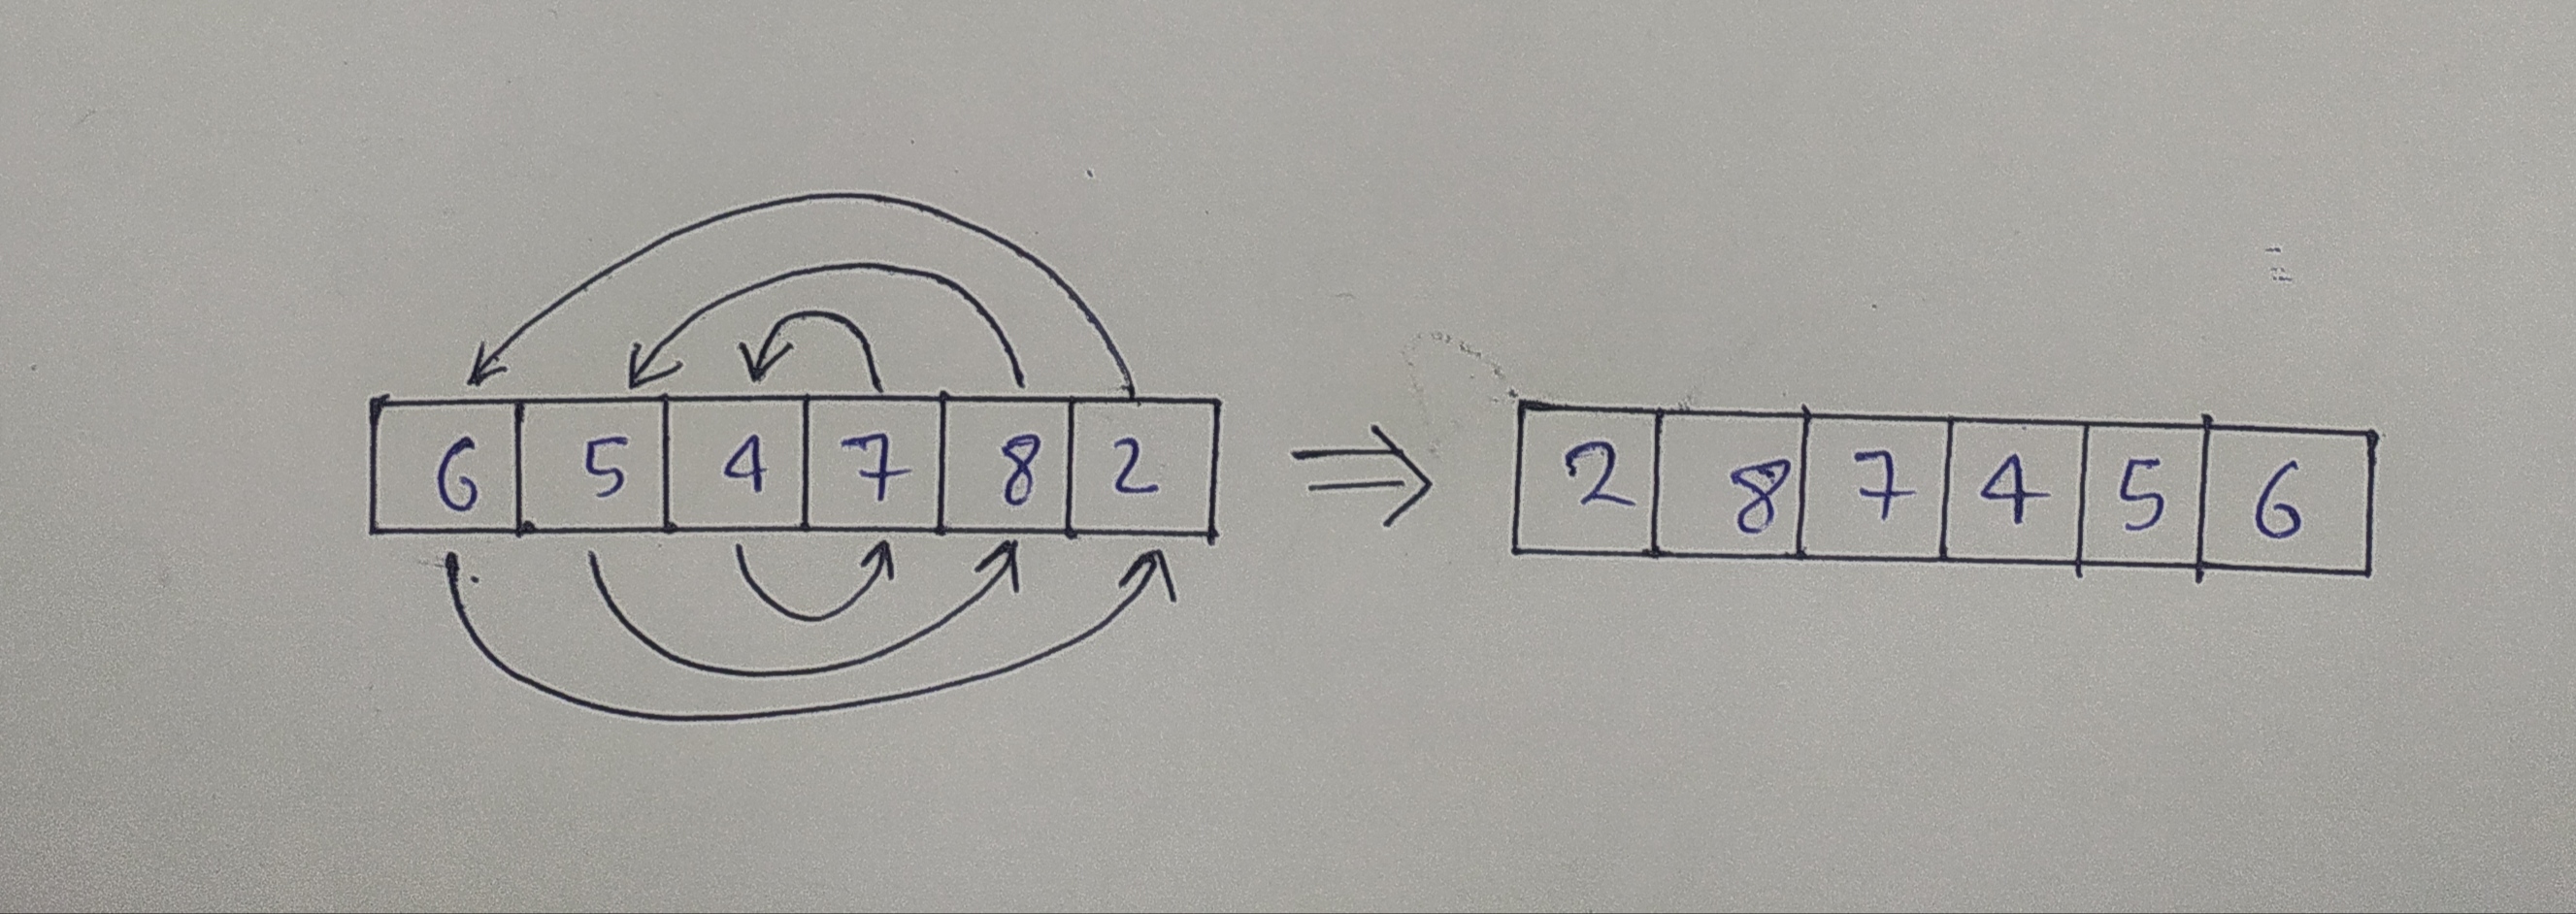 6 5 4 7 8 2 ⇒ 2 8 7 4 5 6